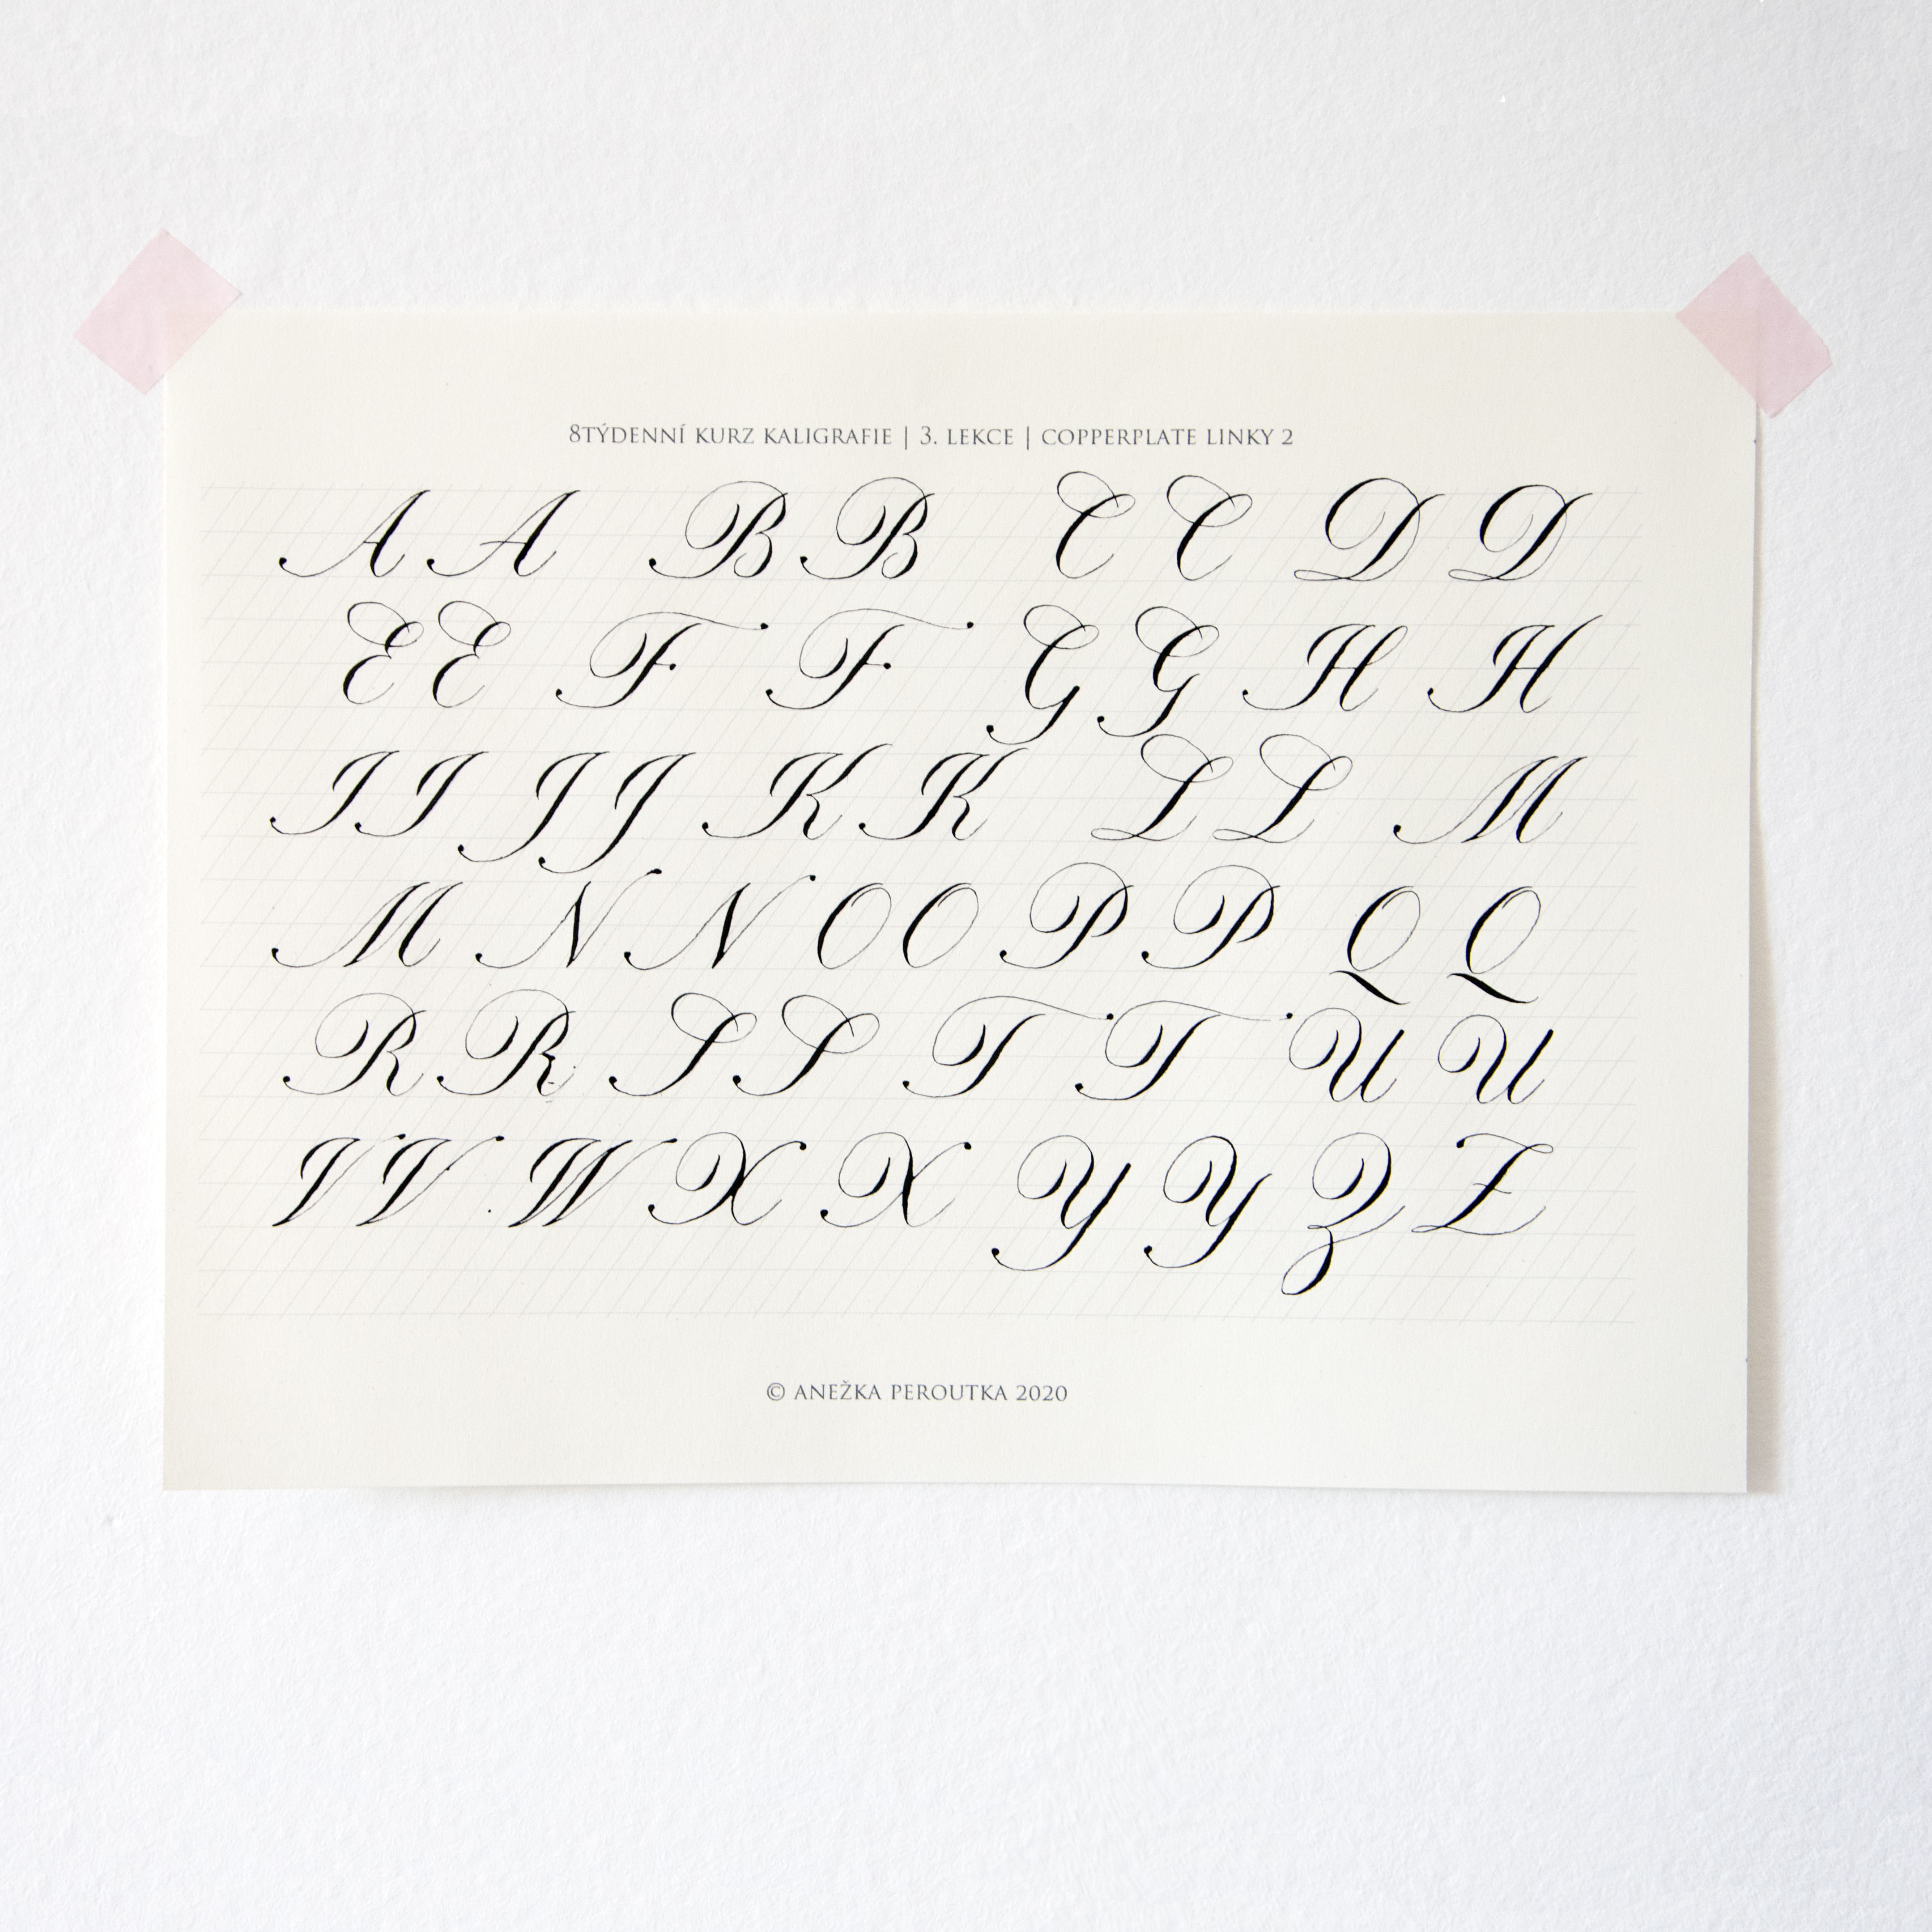 8TÝDENNÍ KURZ KALIGRAFIE | 3. LEKCE | COPPERPLATE LINKY 2
A A B B C C D D
E E F F G G H H
I I J J K K L L M
M N N O O P P Q Q
R R S S T T U U
V V W X X Y Y Z Z
© ANEŽKA PEROUTKA 2020